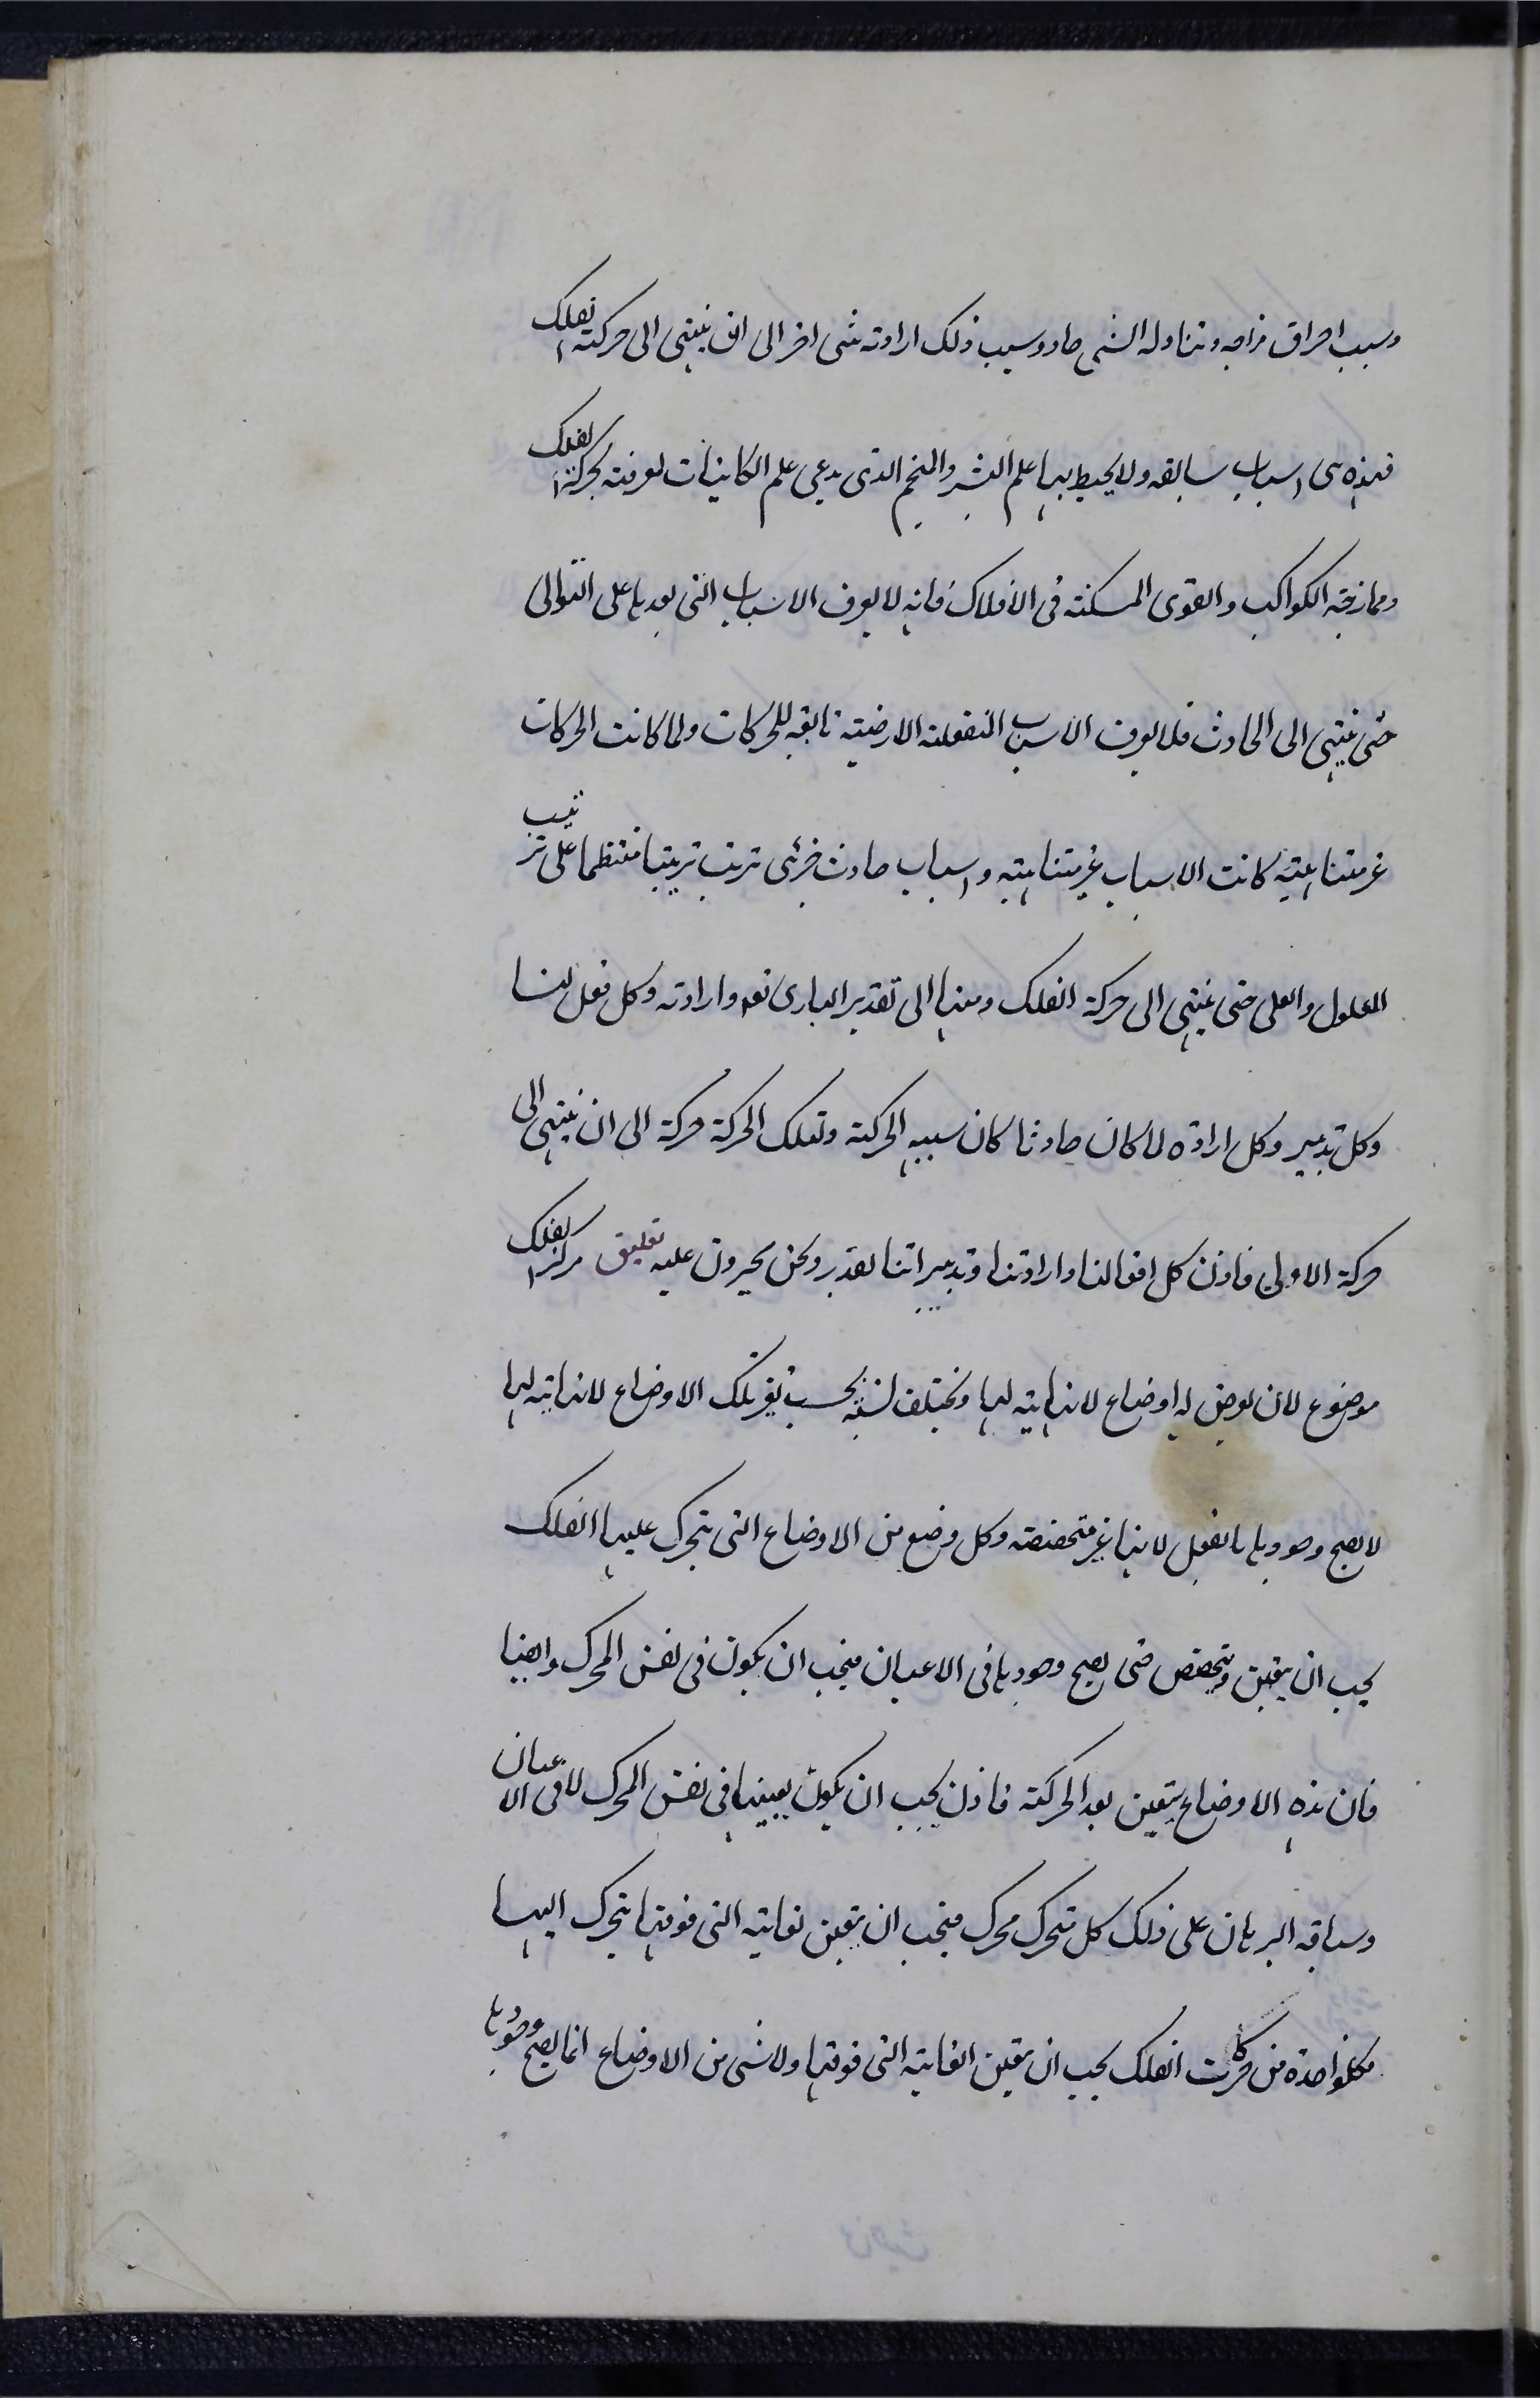 وسبب احراق مزاجه وتناوله الشئ حاد وسبب ذلك ارادته شئ اخر الى ان ينتهى الى حركته الفلك
فهذه هى اسباب سابقه ولا يحيط بها علم البشر والمنجم الذى يدعى علم الكاينات لمعرفته بحركة الفلك
وممازجته الكواكب والقوى المسكنته فى الافلاك فانه لا يعرف الاسباب التى بعدها على التوالى
حتى ينتهى الى الحادث فلا يعرف الاسباب المنفعلته الارضيته تابعه للحركات ولما كانت الحركات
غير متناهيته كانت الاسباب غير متناهيته واسباب حادث جزئى ترتب ترتيبا منتظما على ترتيب
المعلول والعلى حتى ينتهى الى حركة الفلك ومنها الى تقدير البارى تعه وارادته وكل فعل لنا
وكل تدبير وكل ارادة لما كان حادثا كان سببه الحركته وتلك الحركة حركة الى ان ينتهى الى
حركة الاولى فاذن كل افعالنا وارادتنا وتدبيراتنا بقدر ونحن مجبرون عليه تعليق مركز الفلك
موضوع لان يعرض له اوضاع لا نهايته لها وتختلف نسبته بحسب تغير تلك الاوضاع لا نهايته لها
لا يصح وجودها بالفعل لانها غير متخصصته وكل وضع من الاوضاع التى يتحرك عليها الفلك
يجب ان يتعين ويتخصص حتى يصح وجودها فى الاعيان فيجب ان يكون فى نفس المحرك وايضا
فان هذه الاوضاع يتعين بعد الحركته فاذن يجب ان يكون تعينها فى نفس المحرك لا فى الاعيان
وساقه البرهان على ذلك كل متحرك محرك فيجب ان يتعين نهايته التى فوقها يتحرك اليها
فكلواحدة من حركات الفلك يجب ان يتعين الغايته التى فوقها ولا شئ من الاوضاع انما يصح وجودها